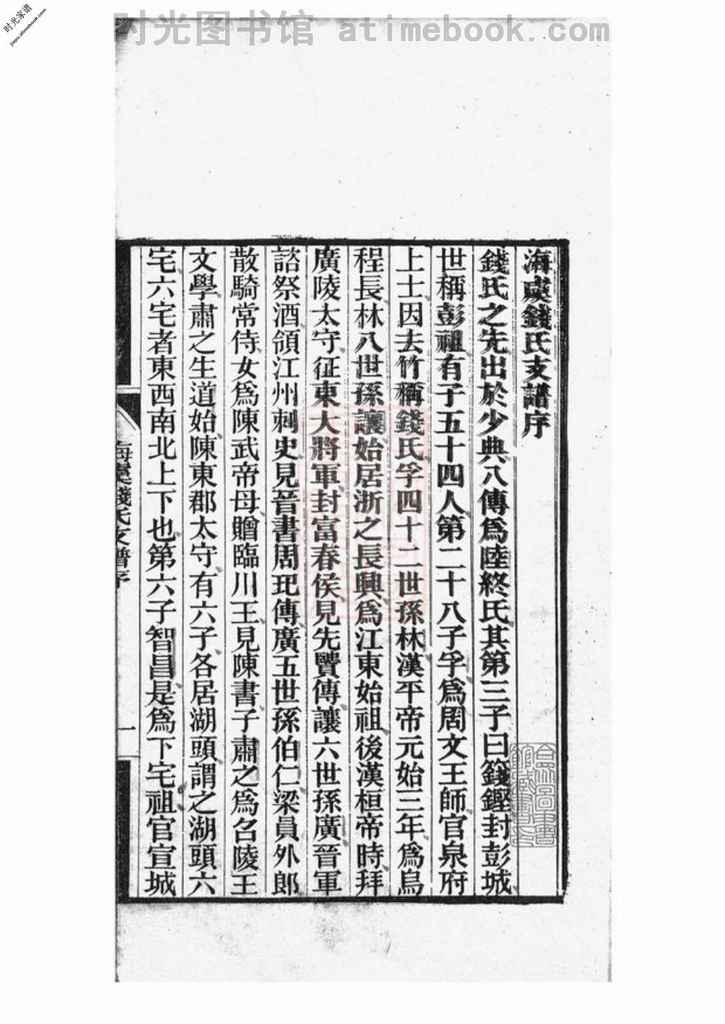 时光图书馆 atimebook.com
时光家谱
海虞錢氏支譜序
錢氏之先出於少典八傳爲陸終氏其第三子曰籛鏗封彭城
世稱彭祖有子五十四人第二十八子孚爲周文王師官泉府
上士因去竹稱錢氏孚四十二世孫林漢平帝元始三年爲烏
程長林八世孫讓始居浙之長興爲江東始祖後漢桓帝時拜
廣陵太守征東大將軍封富春侯見先賢傳讓六世孫廣晉軍
諮祭酒領江州刺史見晉書周玘傳廣五世孫伯仁梁員外郎
散騎常侍女爲陳武帝母贈臨川王見陳書子肅之爲名陵王
文學肅之生道始陳東郡太守有六子各居湖頭謂之湖頭六
宅六宅者東西南北上下也第六子智昌是爲下宅祖官宣城
海虞錢氏支譜序
一